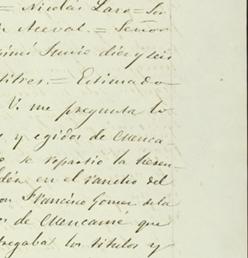 = Nicolás Laro = Sor
n Aceval. = Señor
Junio diez y seis
titres. = Estimado
V. me pregunta lo
s y egidos de Cuenca
se repartio la heren
dén en el rancho del
on Francisco Gomez de la
os de Cuencamé que
tregaba los titulos y